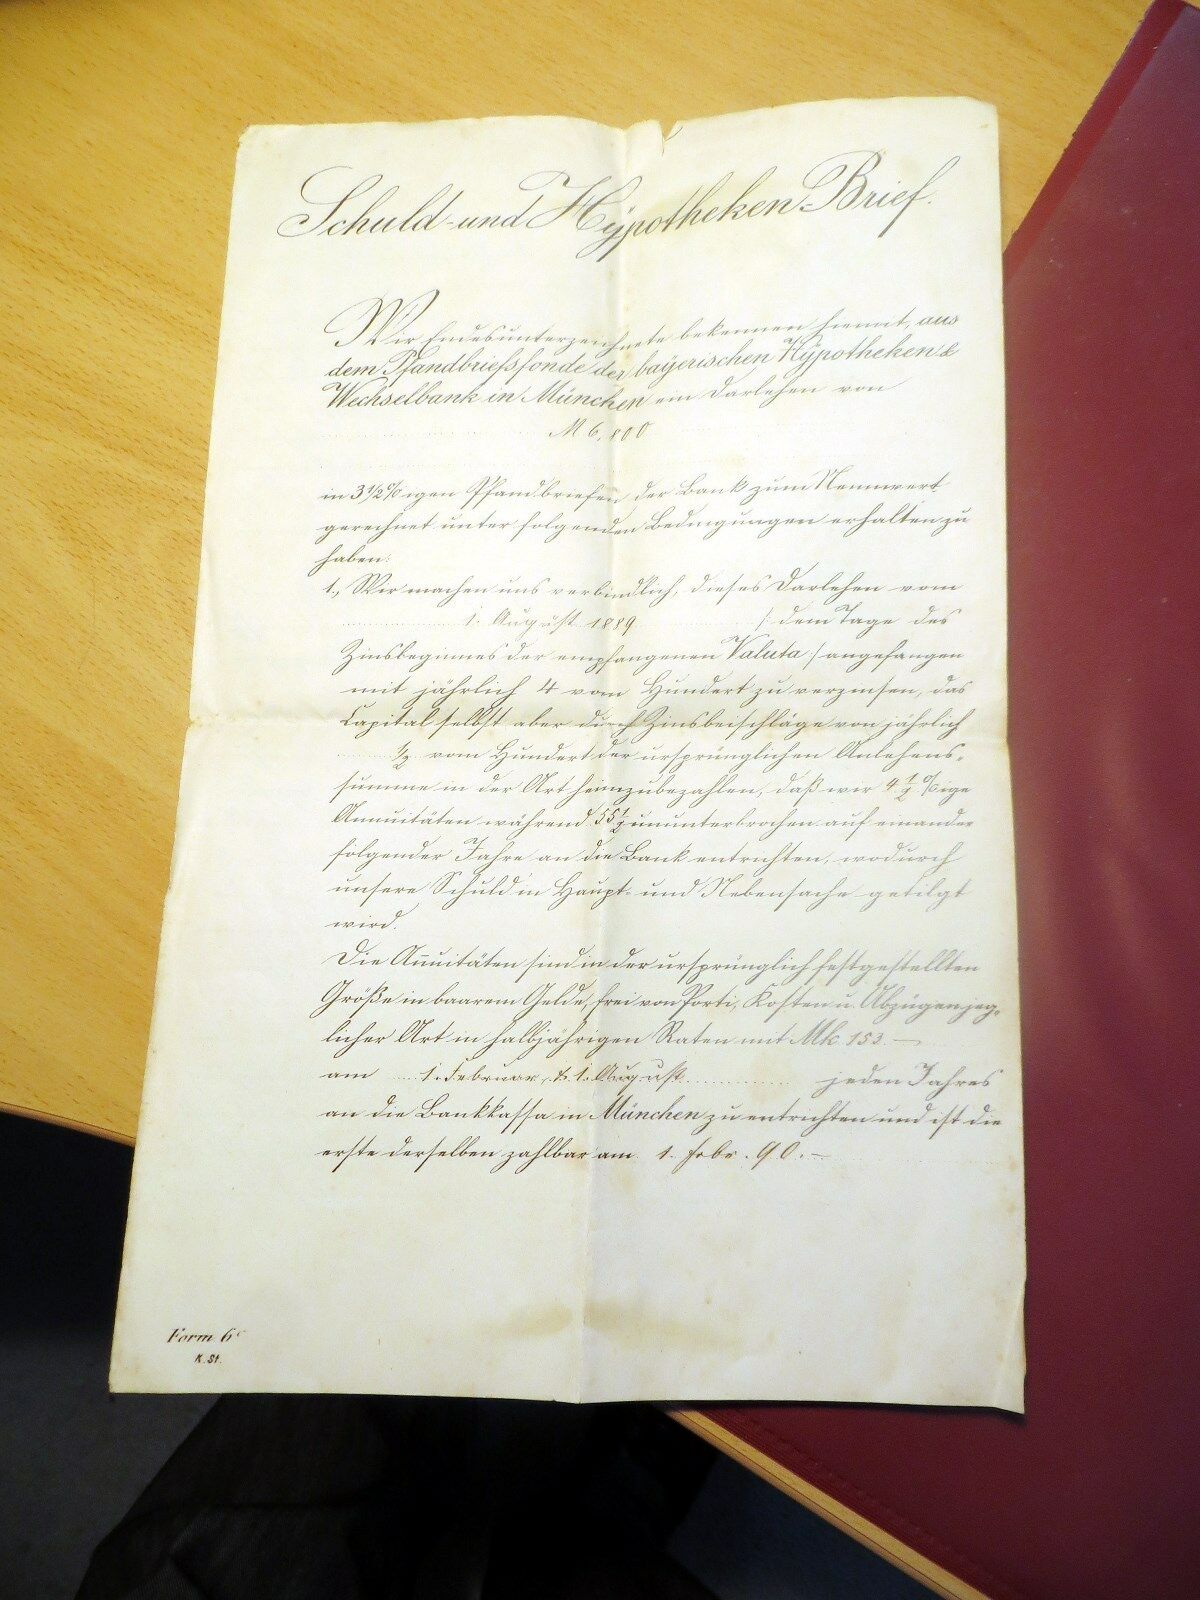 Schuld- und Hÿpotheken-Brief.
Wir Endesunterzeichnete bekennen hiemit, aus
dem Pfandbriefsfonde der bayerischen Hÿpotheken &
Wechselbank in München ein Darlehen von
M 6,800
in 3 1/2 % igen Pfandbriefen der Bank zum Nennwert
gerechnet unter folgenden Bedingungen erhalten zu
haben:
1., Wir machen uns verbindlich, dieses Darlehen vom
1. August 1889 /: dem Tage des
Zinsbeginnes der empfangenen Valuta :/ angefangen
mit jährlich 4 vom Hundert zu verzinsen, das
Capital selbst aber durch Zinsbeischläge von jährlich
1/2 vom Hundert der ursprünglichen Anlehens-
summe in der Art heimzubezahlen, daß wir 4 1/2 % ige
Annuitäten während 55 1/2 ununterbrochen auf einander
folgender Jahre an die Bank entrichten, wodurch
unsere Schuld in Haupt- und Nebensache getilgt
wird.
Die Añuitäten sind in der ursprünglich festgestellten
Größe in baarem Gelde, frei von Porti, Kosten u. Abzügen jeg-
licher Art in halbjährigen Raten mit Mk. 153.—
am 1. Februar & 1. August jeden Jahres
an die Bankkassa in München zu entrichten und ist die
erste derselben zahlbar am 1. Febr. 90.—
Form 6c
K. St.